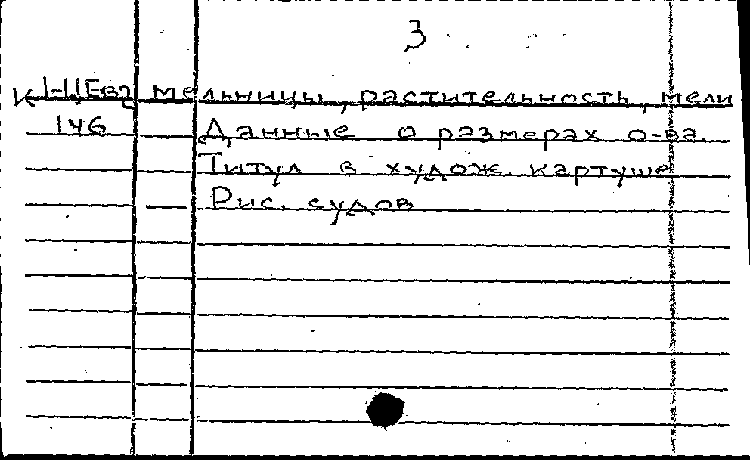 3
К 1-ЦЕв2 мельницы, растительность, мели
146 Данные о размерах о-ва.
Титул в худож. картуше
Рис. судов